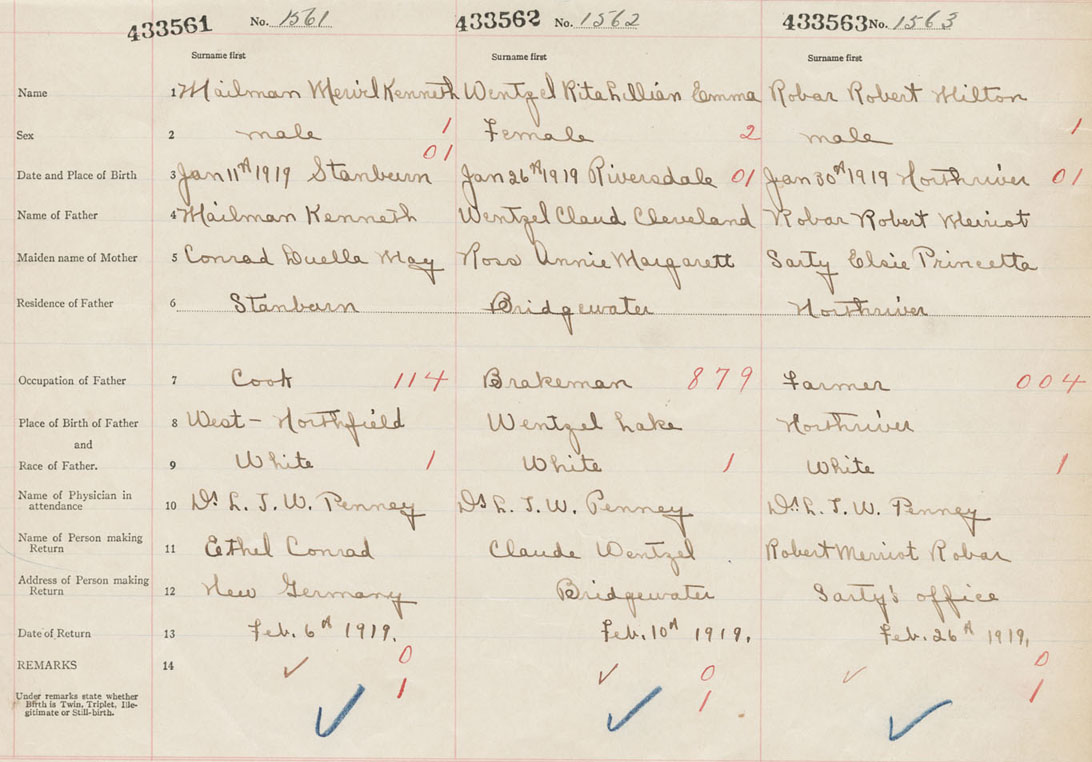 433561 No. 1561 433562 No. 1562 433563 No. 1563
Surname first Surname first Surname first
Name 1 Mailman Mervil Kenneth Wentzel Rita Lillian Emma Robar Robert Milton
Sex 2 male 1 Female 2 male 1
01
Date and Place of Birth 3 Jan 11th 1919 Stanburn Jan 26th 1919 Riversdale 01 Jan 30th 1919 Northriver 01
Name of Father 4 Mailman Kenneth Wentzel Claud Cleveland Robar Robert Merriot
Maiden name of Mother 5 Conrad Duella May Ross Annie Margarett Sarty Elsie Princetta
Residence of Father 6 Stanburn Bridgewater Northriver
Occupation of Father 7 Cook 114 Brakeman 879 Farmer 004
Place of Birth of Father 8 West-Northfield Wentzel Lake Northriver
and
Race of Father. 9 White 1 White 1 White 1
Name of Physician in
attendance 10 Dr. L. J. W. Penney Dr. L. J. W. Penney Dr. L. J. W. Penney
Name of Person making
Return 11 Ethel Conrad Claude Wentzel Robert Merriot Robar
Address of Person making
Return 12 New Germany Bridgewater Sarty's office
Date of Return 13 Feb. 6th 1919. Feb. 10th 1919. Feb. 26th 1919.
REMARKS 14 0 0 0
1 1 1
Under remarks state whether
Birth is Twin, Triplet, Ille-
gitimate or Still-birth.